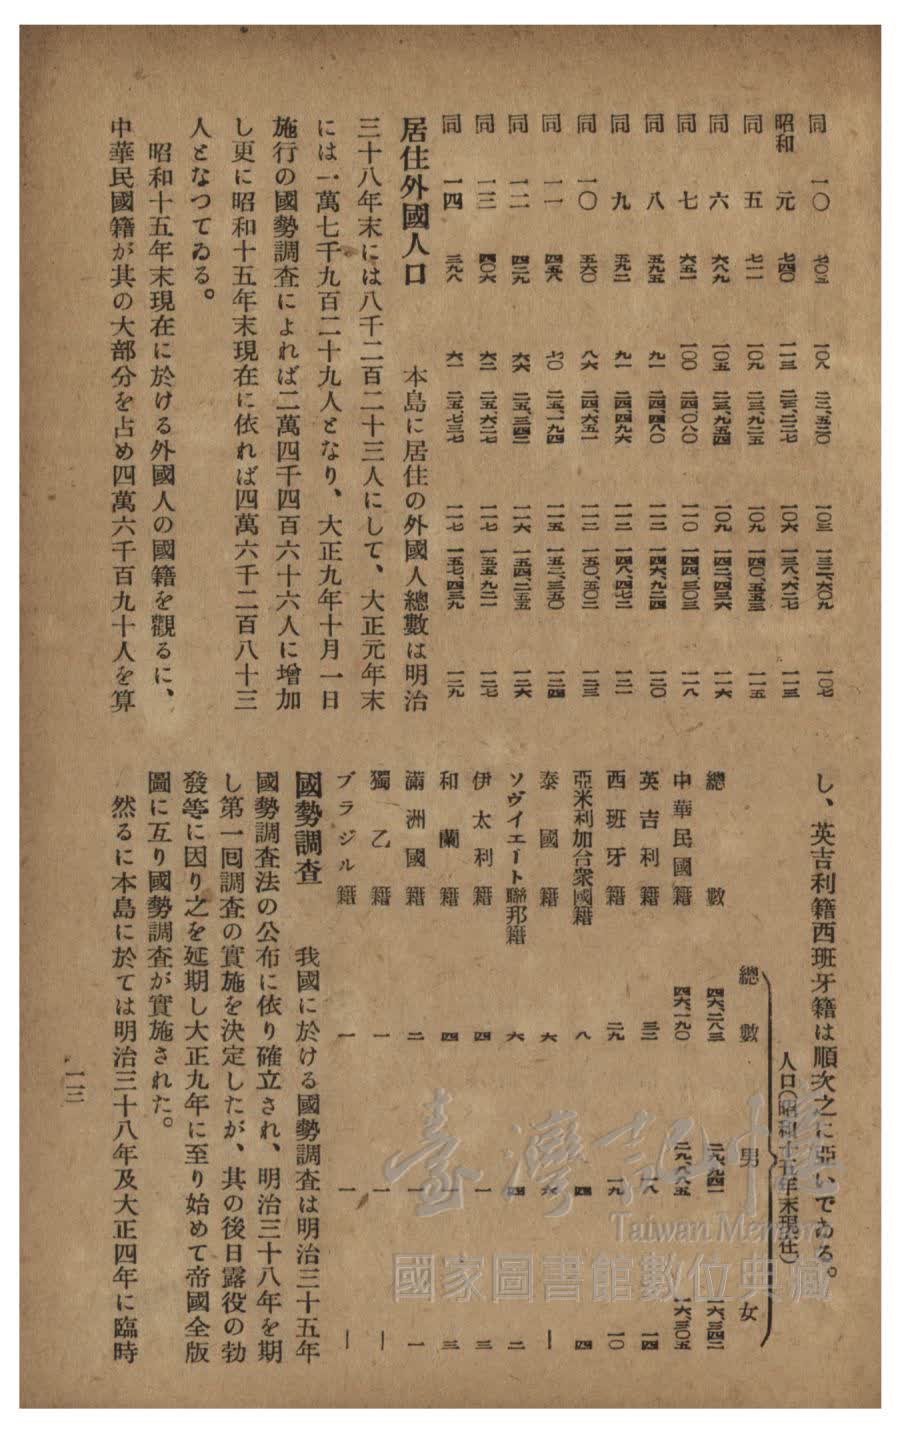 同 一〇 七〇三 一〇八 二二、五三〇 一〇三 一三二、六〇九 一〇七
昭和 元 七四〇 一一三 二三、二二七 一〇六 一三八、六二七 一一三
同 五 七一一 一〇九 二三、九二五 一〇九 一四〇、五五三 一一五
同 六 六八九 一〇五 二三、九五四 一〇九 一四二、四三六 一一六
同 七 六五一 一〇〇 二四、〇八〇 一一〇 一四四、三〇三 一一八
同 八 五九五 九一 二四、四八〇 一一二 一四六、九二四 一二〇
同 九 五九二 九一 二四、四九六 一一二 一四八、四七二 一二一
同 一〇 五六〇 八六 二四、六五一 一一二 一五〇、五〇二 一二三
同 一一 四五八 七〇 二五、一九四 一一五 一五二、三五〇 一二四
同 一二 四二九 六六 二五、三四二 一一六 一五四、二五五 一二六
同 一三 四〇六 六二 二五、六二七 一一七 一五五、九二一 一二七
同 一四 三九八 六一 二五、七三七 一一七 一五七、四三九 一二九
居住外國人口 本島に居住の外國人總數は明治
三十八年末には八千二百二十三人にして、大正元年末
には一萬七千九百二十九人となり、大正九年十月一日
施行の國勢調査によれば二萬四千四百六十六人に增加
し更に昭和十五年末現在に依れば四萬六千二百八十三
人となつてゐる。
昭和十五年末現在に於ける外國人の國籍を觀るに、
中華民國籍が其の大部分を占め四萬六千百九十人を算
し、英吉利籍西班牙籍は順次之に亞いでゐる。
人口(昭和十五年末現在)
總數 男 女
總數 四六、二八三 二九、九四一 一六、三四二
中華民國籍 四六、一九〇 二九、八八五 一六、三〇五
英吉利籍 三二 一八 一四
西班牙籍 二九 一九 一〇
亞米利加合衆國籍 八 四 四
泰國籍 六 六 ―
ソヴイエート聯邦籍 六 四 二
伊太利籍 四 一 三
和蘭籍 四 一 三
滿洲國籍 二 一 一
獨乙籍 一 一 ―
ブラジル籍 一 一 ―
國勢調査 我國に於ける國勢調査は明治三十五年
國勢調査法の公布に依り確立され、明治三十八年を期
し第一囘調査の實施を決定したが、其の後日露役の勃
發等に因り之を延期し大正九年に至り始めて帝國全版
圖に亙り國勢調査が實施された。
然るに本島に於ては明治三十八年及大正四年に臨時
一三
臺灣記憶
Taiwan Memory
國家圖書館數位典藏